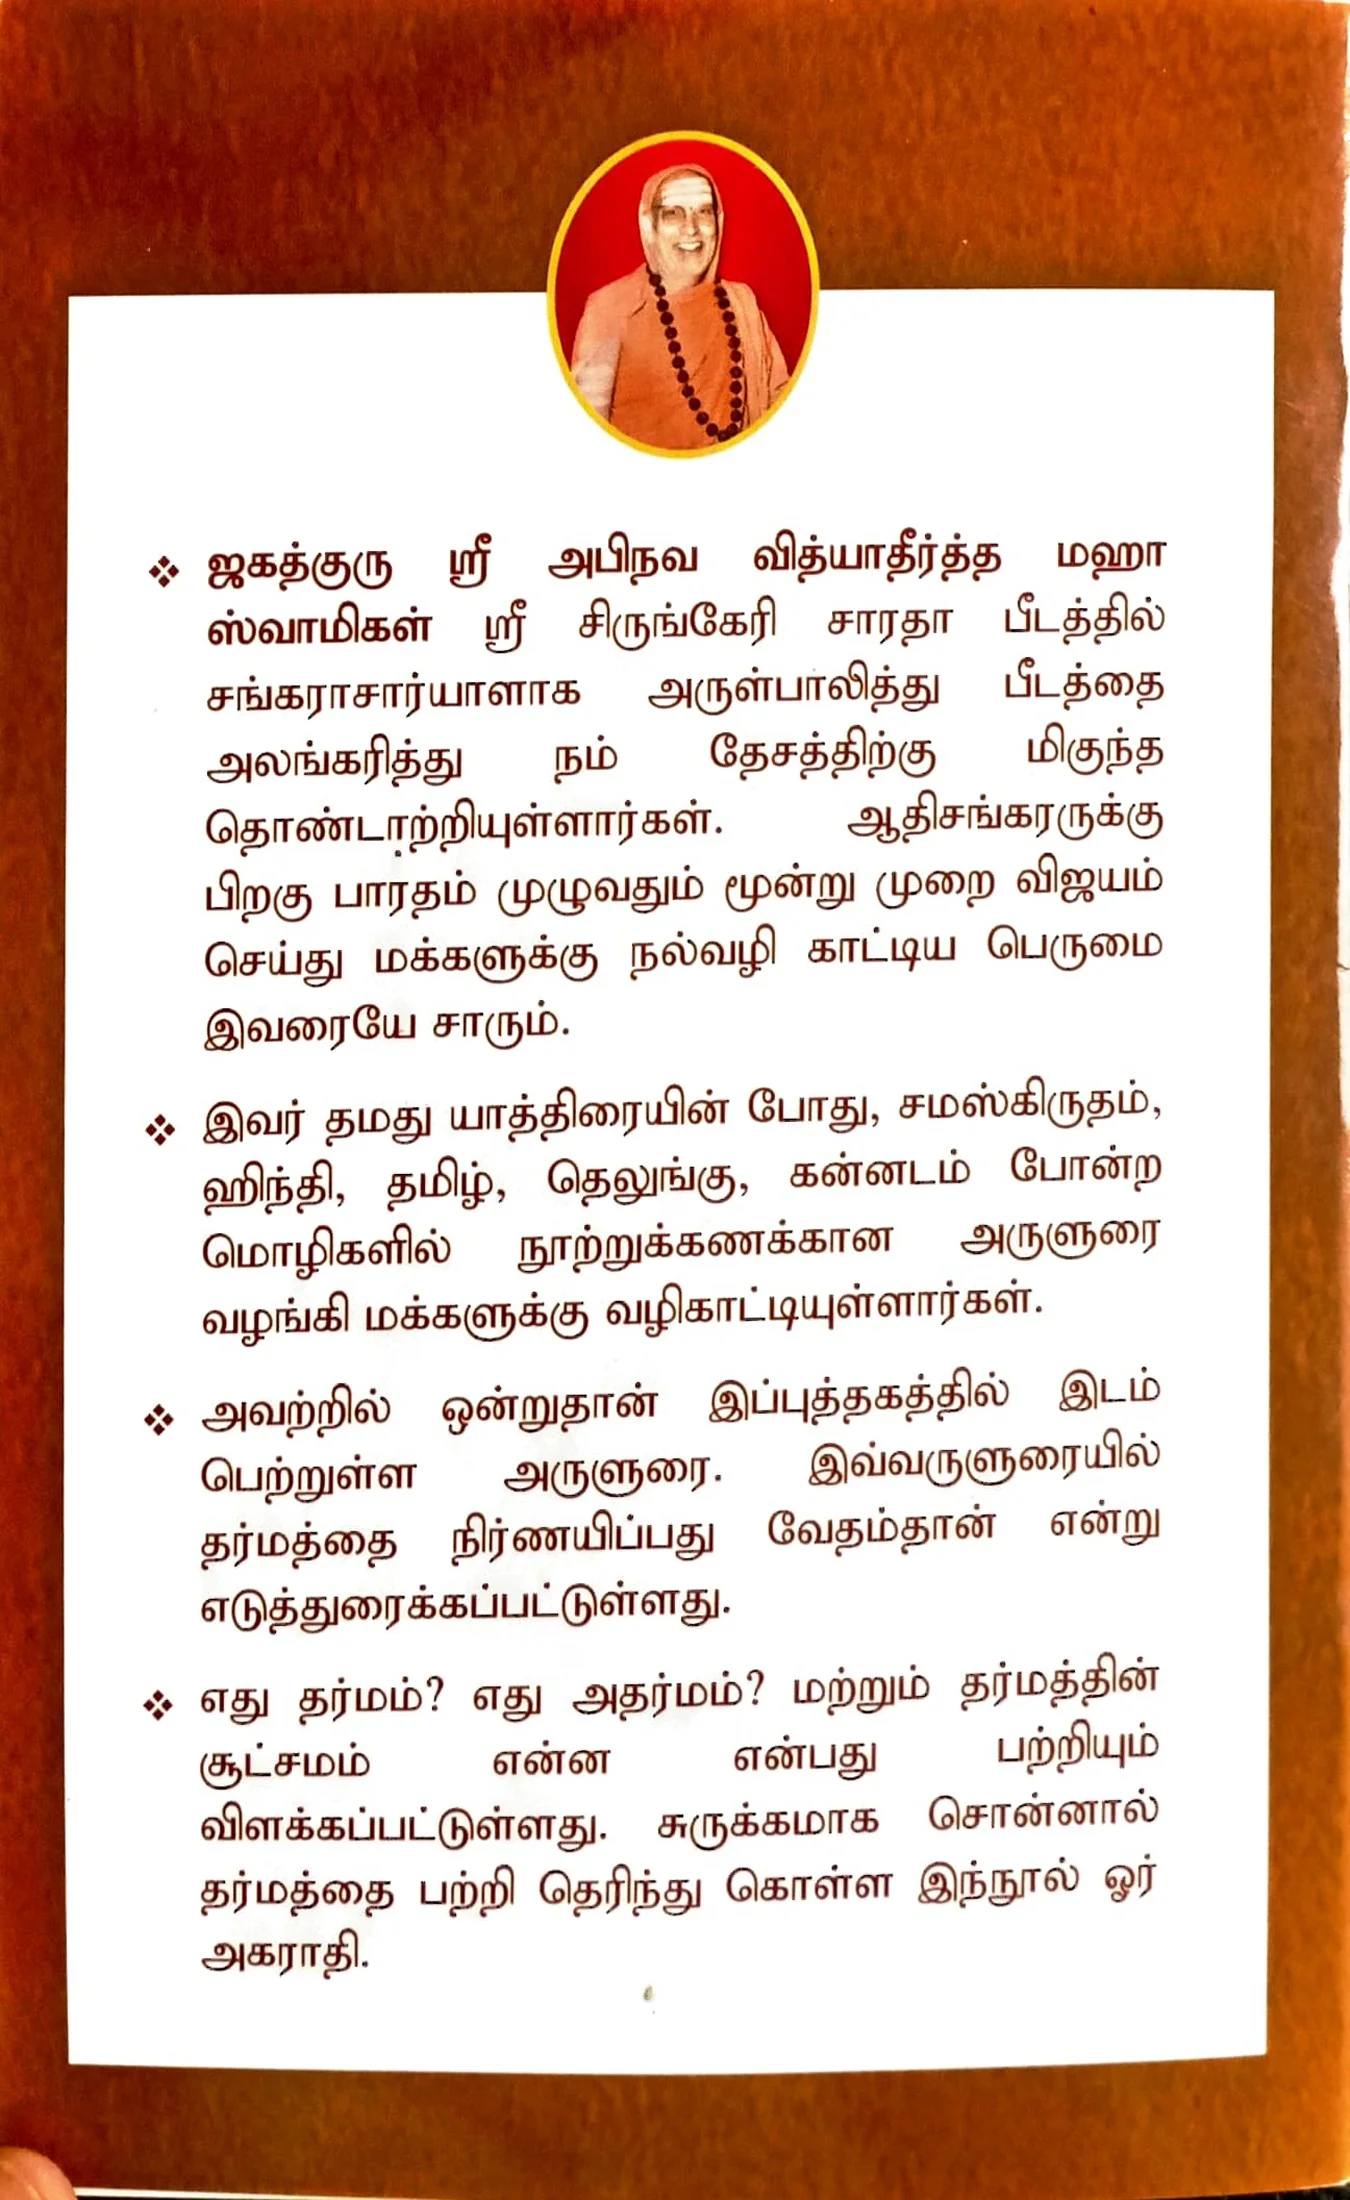 ❖ ஜகத்குரு ஸ்ரீ அபிநவ வித்யாதீர்த்த மஹா
ஸ்வாமிகள் ஸ்ரீ சிருங்கேரி சாரதா பீடத்தில்
சங்கராசார்யாளாக அருள்பாலித்து பீடத்தை
அலங்கரித்து நம் தேசத்திற்கு மிகுந்த
தொண்டாற்றியுள்ளார்கள். ஆதிசங்கரருக்கு
பிறகு பாரதம் முழுவதும் மூன்று முறை விஜயம்
செய்து மக்களுக்கு நல்வழி காட்டிய பெருமை
இவரையே சாரும்.
❖ இவர் தமது யாத்திரையின் போது, சமஸ்கிருதம்,
ஹிந்தி, தமிழ், தெலுங்கு, கன்னடம் போன்ற
மொழிகளில் நூற்றுக்கணக்கான அருளுரை
வழங்கி மக்களுக்கு வழிகாட்டியுள்ளார்கள்.
❖ அவற்றில் ஒன்றுதான் இப்புத்தகத்தில் இடம்
பெற்றுள்ள அருளுரை. இவ்வருளுரையில்
தர்மத்தை நிர்ணயிப்பது வேதம்தான் என்று
எடுத்துரைக்கப்பட்டுள்ளது.
❖ எது தர்மம்? எது அதர்மம்? மற்றும் தர்மத்தின்
சூட்சமம் என்ன என்பது பற்றியும்
விளக்கப்பட்டுள்ளது. சுருக்கமாக சொன்னால்
தர்மத்தை பற்றி தெரிந்து கொள்ள இந்நூல் ஓர்
அகராதி.